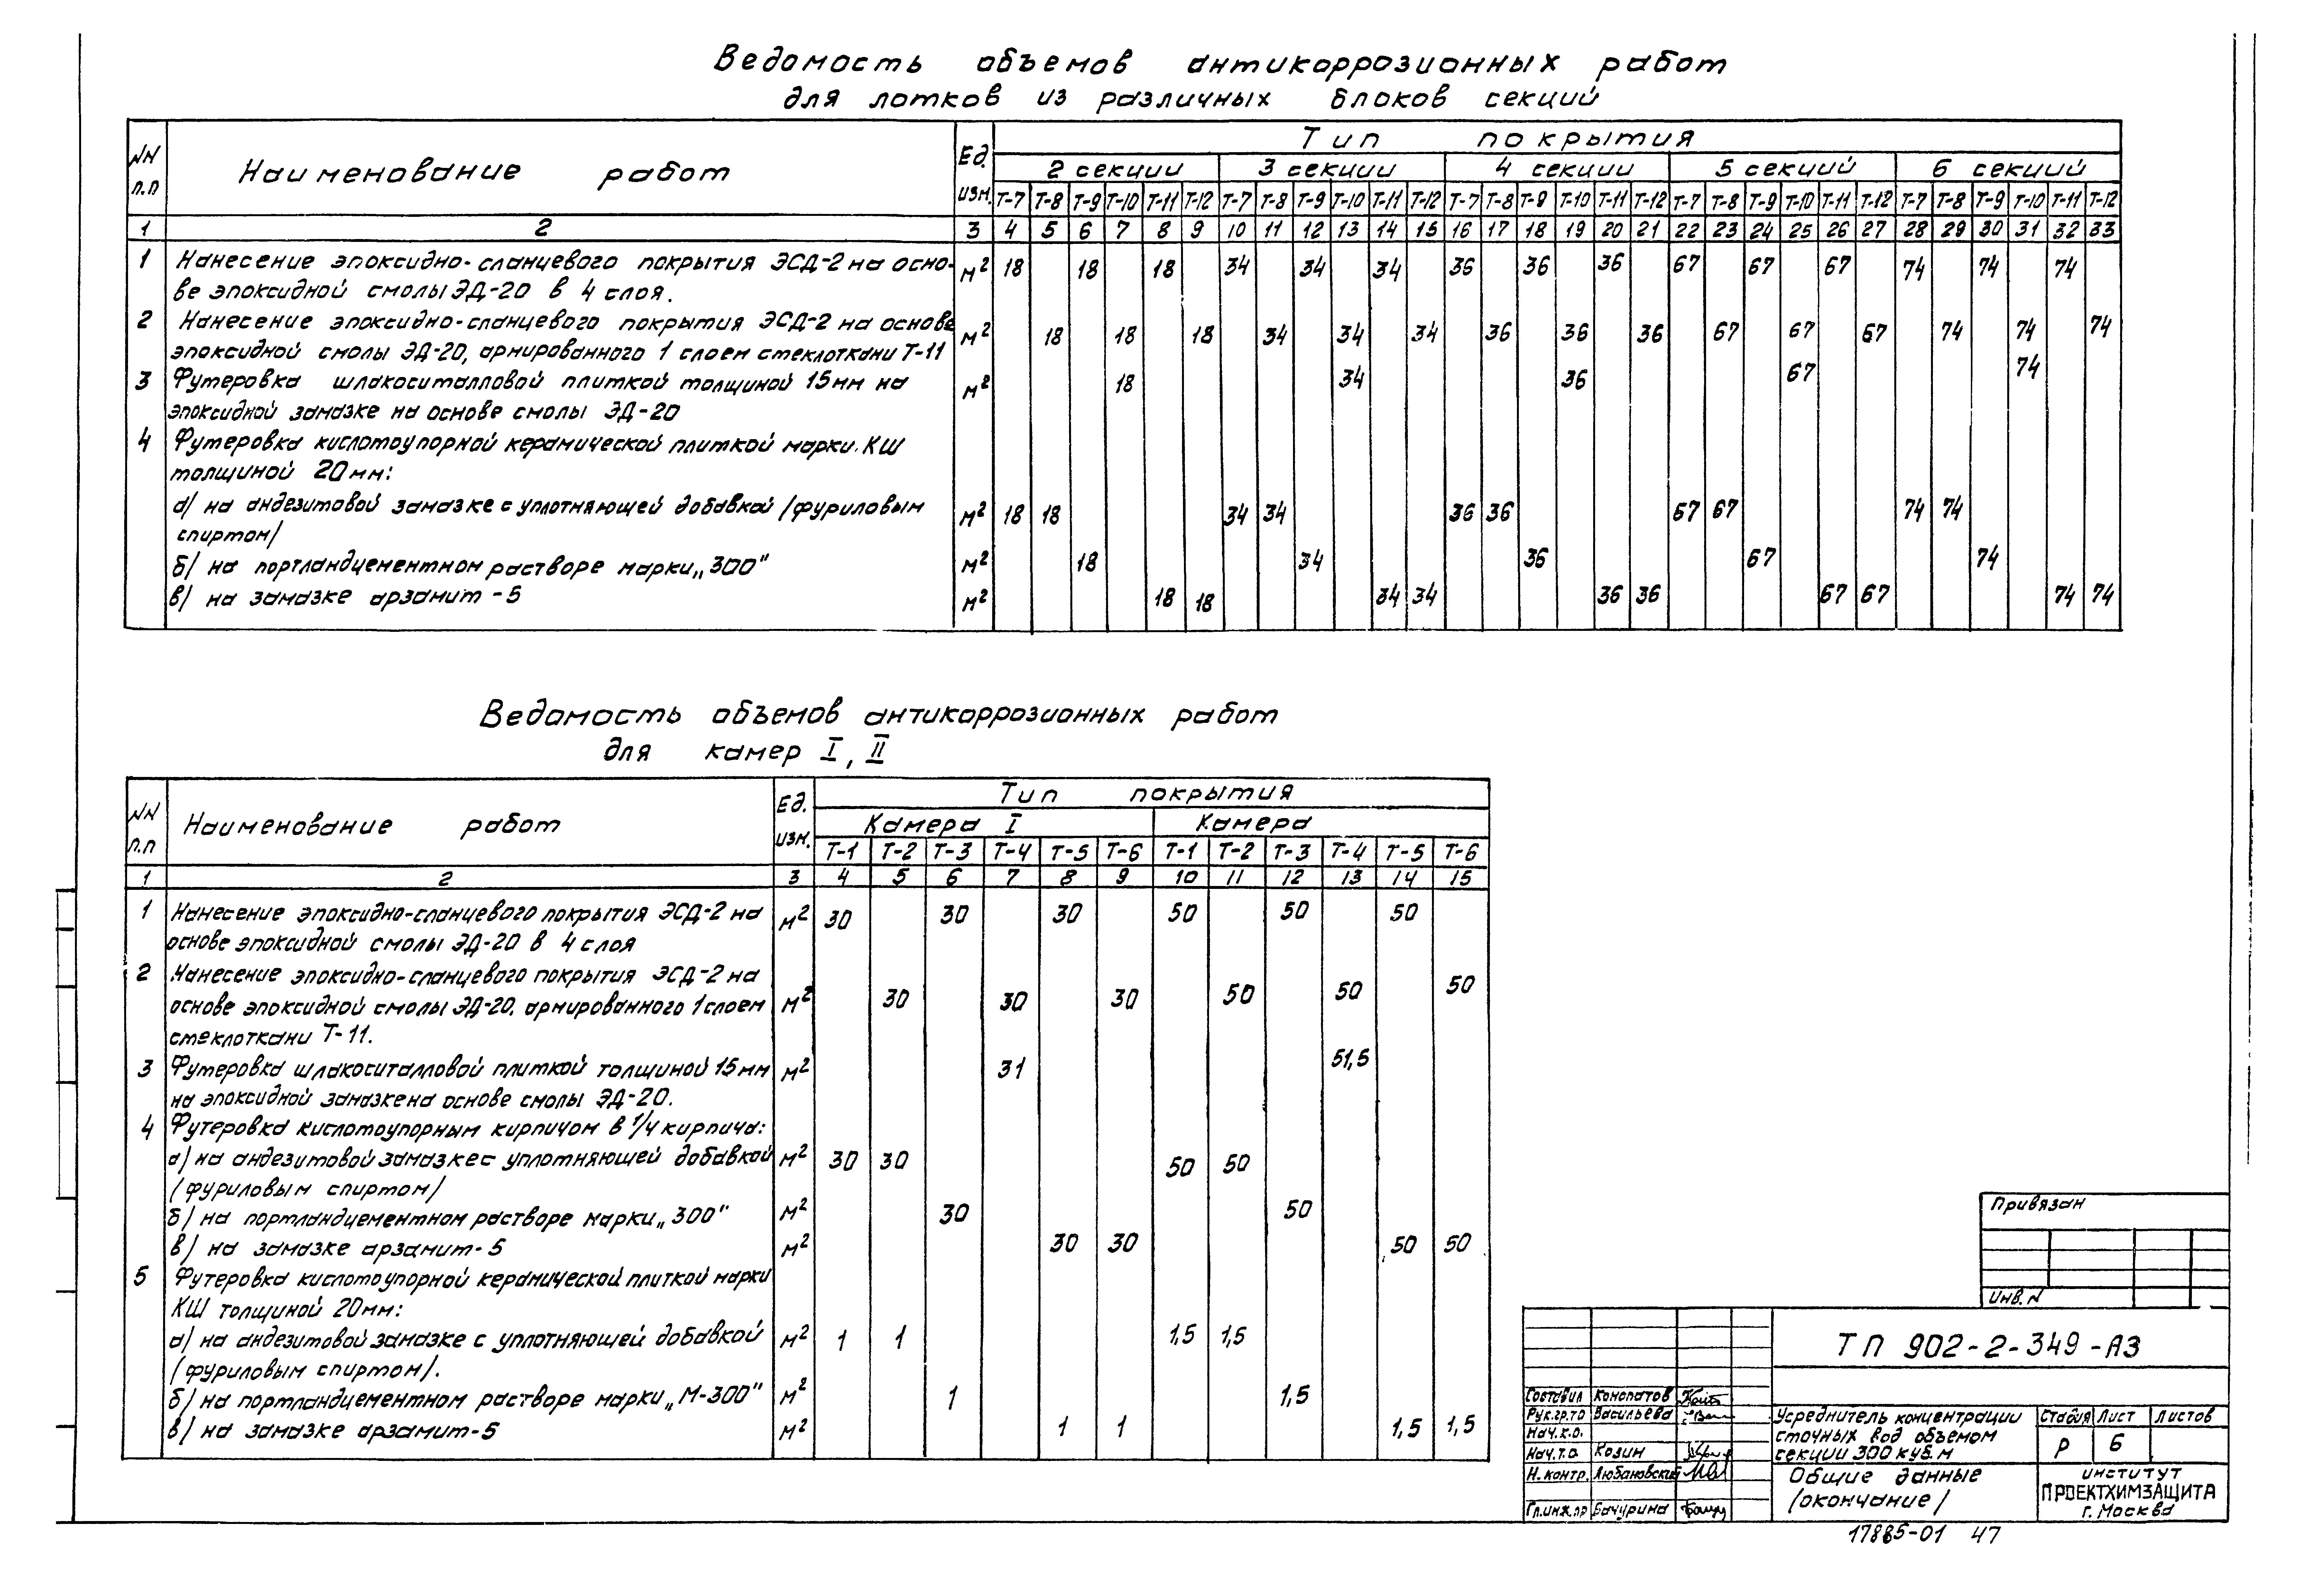 Ведомость объемов антикоррозионных работ
для лотков из различных блоков секций
NN п.п Наименование работ Ед. изм. Тип покрытия
2 секции 3 секции 4 секции 5 секций 6 секций
Т-7 Т-8 Т-9 Т-10 Т-11 Т-12 Т-7 Т-8 Т-9 Т-10 Т-11 Т-12 Т-7 Т-8 Т-9 Т-10 Т-11 Т-12 Т-7 Т-8 Т-9 Т-10 Т-11 Т-12 Т-7 Т-8 Т-9 Т-10 Т-11 Т-12
1 2 3 4 5 6 7 8 9 10 11 12 13 14 15 16 17 18 19 20 21 22 23 24 25 26 27 28 29 30 31 32 33
1 Нанесение эпоксидно-сланцевого покрытия ЭСД-2 на осно- м² 18 18 18 34 34 34 36 36 36 67 67 67 74 74 74
ве эпоксидной смолы ЭД-20 в 4 слоя.
2 Нанесение эпоксидно-сланцевого покрытия ЭСД-2 на основе м² 18 18 18 34 34 34 36 36 36 67 67 67 74 74 74
эпоксидной смолы ЭД-20, армированного 1 слоем стеклоткани Т-11
3 Футеровка шлакоситалловой плиткой толщиной 15мм на м² 18 34 36 67 74
эпоксидной замазке на основе смолы ЭД-20
4 Футеровка кислотоупорной керамической плиткой марки КШ
толщиной 20мм:
а/ на андезитовой замазке с уплотняющей добавкой /фуриловым м² 18 18 34 34 36 36 67 67 74 74
спиртом/
б/ на портландцементном растворе марки „300" м² 18 34 36 67 74
в/ на замазке арзамит-5 м² 18 18 34 34 36 36 67 67 74 74
Ведомость объемов антикоррозионных работ
для камер I, II
NN п.п Наименование работ Ед. изм. Тип покрытия
Камера I Камера
Т-1 Т-2 Т-3 Т-4 Т-5 Т-6 Т-1 Т-2 Т-3 Т-4 Т-5 Т-6
1 2 3 4 5 6 7 8 9 10 11 12 13 14 15
1 Нанесение эпоксидно-сланцевого покрытия ЭСД-2 на м² 30 30 30 50 50 50
основе эпоксидной смолы ЭД-20 в 4 слоя
2 Нанесение эпоксидно-сланцевого покрытия ЭСД-2 на
основе эпоксидной смолы ЭД-20, армированного 1 слоем м² 30 30 30 50 50 50
стеклоткани Т-11.
3 Футеровка шлакоситалловой плиткой толщиной 15мм м² 31 51,5
на эпоксидной замазке на основе смолы ЭД-20.
4 Футеровка кислотоупорным кирпичом в 1/4 кирпича:
а/ на андезитовой замазке с уплотняющей добавкой м² 30 30 50 50
/фуриловым спиртом/
б/ на портландцементном растворе марки „300" м² 30 50
в/ на замазке арзамит-5 м² 30 30 50 50
5 Футеровка кислотоупорной керамической плиткой марки
КШ толщиной 20мм:
а/ на андезитовой замазке с уплотняющей добавкой м² 1 1 1,5 1,5
/фуриловым спиртом/.
б/ на портландцементном растворе марки „М-300" м² 1 1,5
в/ на замазке арзамит-5 м² 1 1 1,5 1,5
Привязан
Инв. N
ТП 902-2-349-АЗ
Составил Конопатов
Рук.гр.то Васильева
Нач.х.о.
Нач.т.о. Козин
Н.контр. Любановский
Гл.инж.пр Бачурина
Усреднитель концентрации
сточных вод объемом
секции 300 куб.м
Стадия Лист Листов
Р 6
Общие данные
/окончание/
институт
ПРОЕКТХИМЗАЩИТА
г. Москва
17885-01 47